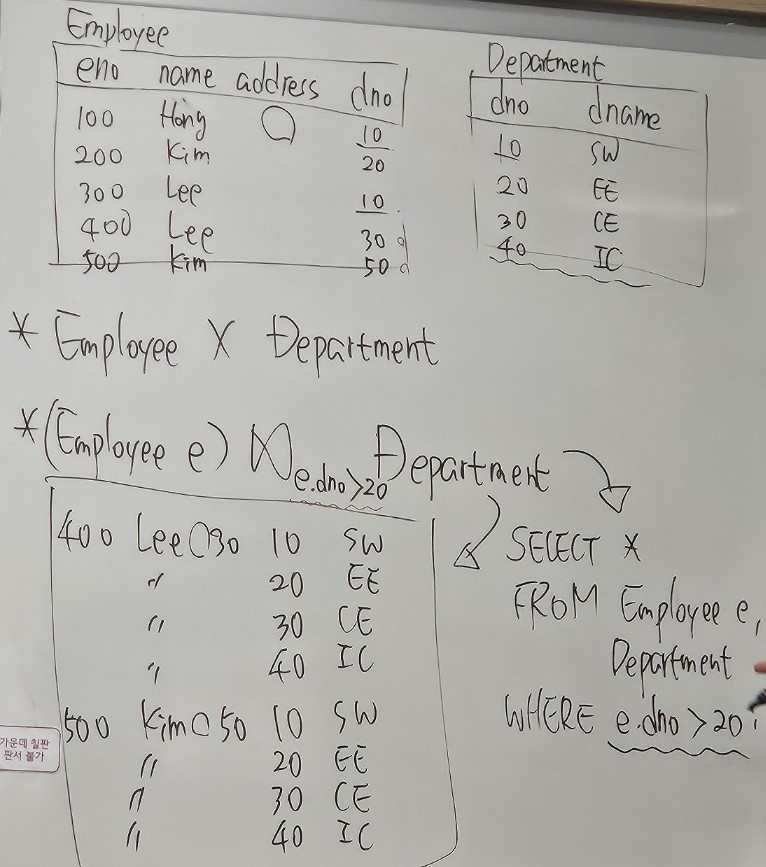 Employee
eno name address dno
100 Hong ○ 10
200 Kim 20
300 Lee 10
400 Lee 30
500 Kim 50
Department
dno dname
10 SW
20 EE
30 CE
40 IC
* Employee X Department
* (Employee e) ⋈ e.dno>20 Department
400 Lee ○ 30 10 SW
〃 20 EE
〃 30 CE
〃 40 IC
500 Kim ○ 50 10 SW
〃 20 EE
〃 30 CE
〃 40 IC
SELECT *
FROM Employee e,
Department
WHERE e.dno > 20;
가운데 칠판
판서 불가